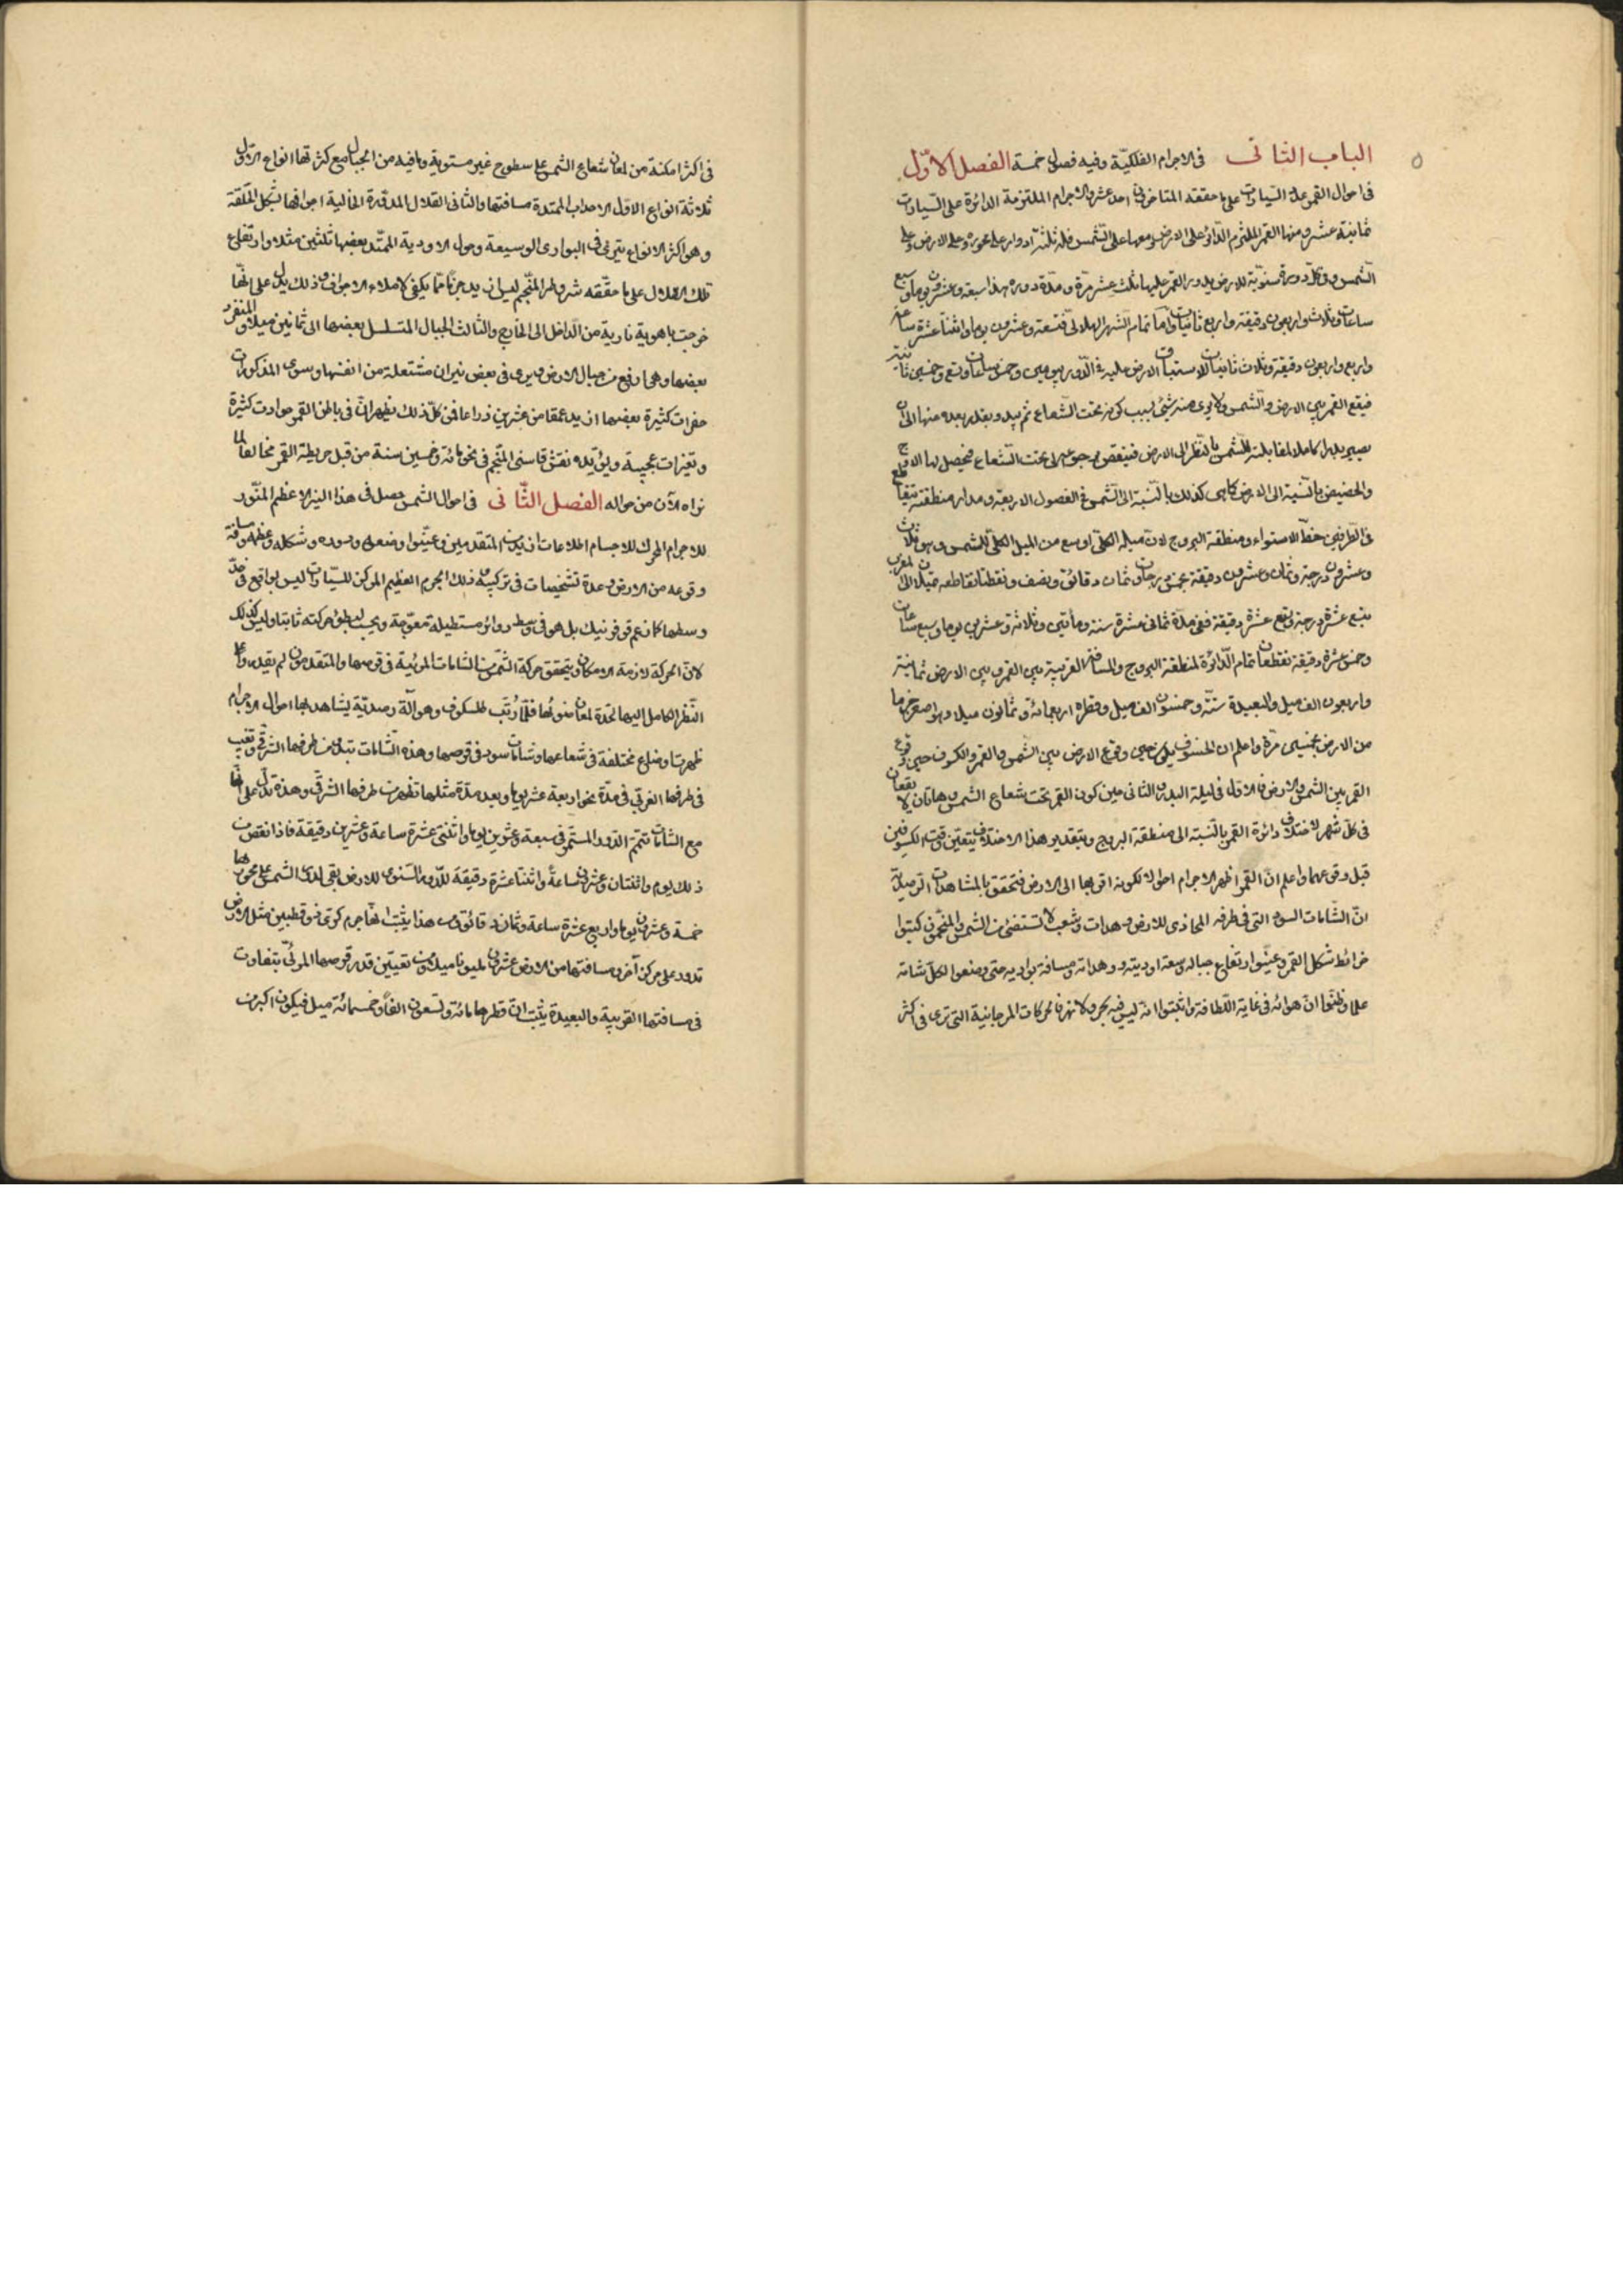 ٥
الباب الثانى فى الاجرام الفلكيّة وفيه فصول خمسة الفصل الاوّل
فى احوال القمر على السيارات على ما حققه المتاخرون احد عشر والاجرام الملتزمة الدائرة على السّيارات
ثمانية عشر ومنها القمر الملتزم الدائر على الارض ومعها على الشمس فله ثلثة ادوار على محوره وعلى الارض وعلى
الشمس وفى كلّ دورة سنويّة للارض يدور القمر عليها ثلث عشر مرّة ومدّة دوره هذا سبعة وعشرون يوما وسبع
ساعات وثلاث واربعون دقيقة واربع ثانيات واما تمام الشهر الهلالى فتسعة وعشرون يوما واثنتا عشرة ساعة
واربع واربعون دقيقة وثلاث ثانيات لاستباق الارض عليه فى الدّور بيومين وخمس ساعات وتسع وخمسين ثانية
فيقع القمر بين الارض والشمس ولا يرى منه شئ بسبب كونه تحت الشعاع ثم يبدو بقدر بعده منها الى ان
يصير بدرا كاملا لمقابلته للشمس بالنظر الى الارض فينقص رجوعه الى تحت الشعاع فيحصل لها الاوج
والحضيض بالنسبة الى الارض كما هى كذلك بالنسبة الى الشمس فى الفصول الاربعة ومدار منطقته يتقاطع
فى الطرفين خطّ الاستواء ومنطقة البروج لانّ ميله الكلّى اوسع من الميل الكلّى للشمس وهو ثلاث
وعشرون درجة وثمان وعشرون دقيقة بخمس درجات وثمان دقائق ونصف ونقطتا تقاطعه تميلان الى المغرب
بتسع عشرة درجة وتسع عشرة دقيقة ففى مدّة ثمانى عشرة سنة ومأتين وثلاثة وعشرين يوما وسبع ساعات
وخمس عشرة دقيقة تقطعان تمام الدّائرة لمنطقة البروج والمسافة القريبة بين القمر وبين الارض ثمانية
واربعون الف ميل والبعيدة ستّة وخمسون الف ميل وقطره اربعمائة وثمانون ميلا وهو اصغر جرما
من الارض بخمسين مرّة واعلم ان الخسوف يكون حين وقوع الارض بين الشمس والقمر والكسوف حين وقوع
القمر بين الشمس والارض فالاول فى ليلة البدر والثانى حين كون القمر تحت شعاع الشمس وهاتان لا يقعان
فى كلّ شهر لاختلاف دائرة القمر بالنسبة الى منطقة البروج وبتقدير هذا الاختلاف يتعيّن وقت الكسوفين
قبل وقوعهما واعلم انّ القمر اظهر الاجرام احوالا لكونه اقربها الى الارض فتحقق بالمشاهدات الرصديّة
انّ الشامات السود التى فى طرفه المحاذى للارض وهدات وشعب لا تستضئ من الشمس والمنجمون كتبوا
خرائط شكل القمر وعيّنوا ارتفاع جباله وسعة اوديته ووهداته ومسافة بواديه حتى وضعوا لكلّ شامة
علما وظنّوا انّ هوائه فى غاية اللّطافة واثبتوا انه ليس فيه بحر ولا نهر فالحركات المرجانية التى ترى فى اكثر
فى اكثر امكنة من لمعان شعاع الشمس على سطوح غير مستوية وما فيه من الجبال مع كثرتها انواع الاوّل
ثلاثة انواع الاوّل الاحداب الممتدة مسافتها والثانى القلال المدوّرة الخالية اجوافها بشكل الحلقة
وهو اكثر الانواع يترى فى البوادى الوسيعة وحول الاودية الممتدّ بعضها ثلثين مثلا وارتفاع
تلك القلال على ما حققه شروطر المنجم ليس ازيد جرما مما يكفى لاملاء الاجواف وذلك يدل على انّها
خرجت باهوية نارية من الداخل الى الخارج والثالث الجبال المتسلسل بعضها الى ثمانين ميلا والمنفرد
بعضها وهى ارفع من جبال الارض ويرى فى بعض نيران مشتعلة من انفسها وسوى المذكورات
حفرات كثيرة بعضها ازيد عمقا من عشرين ذراعا فمن كلّ ذلك يظهر انّ فى باطن القمر حوادث كثيرة
وتغيرات عجيبة ويؤيّده نقش قاسنى المنجم فى نحو مائة وخمسين سنة من قبل خريطة القمر مخالفا لما
نراه الآن من حواله الفصل الثّانى فى احوال الشمس حصل فى هذا النير الاعظم المنوّر
للاجرام المحرك للاجسام اطلاعات ازيد من المتقدمين وعيّنوا وضعه ودوره وشكله وعظمه ومسافة
وقوعه من الارض وعدة تشخيصات فى تركيبه ذلك الجرم العظيم المركز للسيّارات ليس بواقع فى حدّ
وسطها كما زعم قوفرنيك بل هو فى وسط دوائر مستطيلة معوّجة ويحسب لبطؤ حركته ثابتا وليس كذلك
لانّ الحركة لازمة الامكان ويتحقق حركة الشمس من الشامات المرئية فى قرصها والمتقدمون لم يقدروا على
النّظر الكامل اليها لحدة لمعان ضوئها فلمّا رتّب طلسكوف وهو آلة رصديّة يشاهد بها احوال الاجرام
ظهرت اوضاع مختلفة فى شعاعها وشامات سود فى قرصها وهذه الشامات تبدل من طرفها الشرقى وتغيب
فى طرفها الغربى فى مدّة نحو اربعة عشر يوما وبعد مدّة مثلها تظهر من طرفها الشرقى وهذه تدلّ على انّها
مع الشامات تتمّم الدّور المستمر فى سبعة وعشرين يوما واثنتى عشرة ساعة وعشرين دقيقة فاذا نقص من
ذلك يوم واثنتان وعشرون ساعة واثنتا عشرة دقيقة للدّور السّنوى للارض بقى لدور الشمس على محورها
خمسة وعشرون يوما واربع عشرة ساعة وثمان دقائق ومن هذا يثبت انّها جرم كروىّ ذو قطبين مثل الارض
تدور على مركز آخر ومسافتها من الارض عشرون مليونا ميلا ومن تعيين قدر قرصها المرئىّ بتفاوت
فى مسافتها القريبة والبعيدة يثبت انّ قطرها مائة وتسعون الفا وخمسمائة ميل فيكون اكبر من